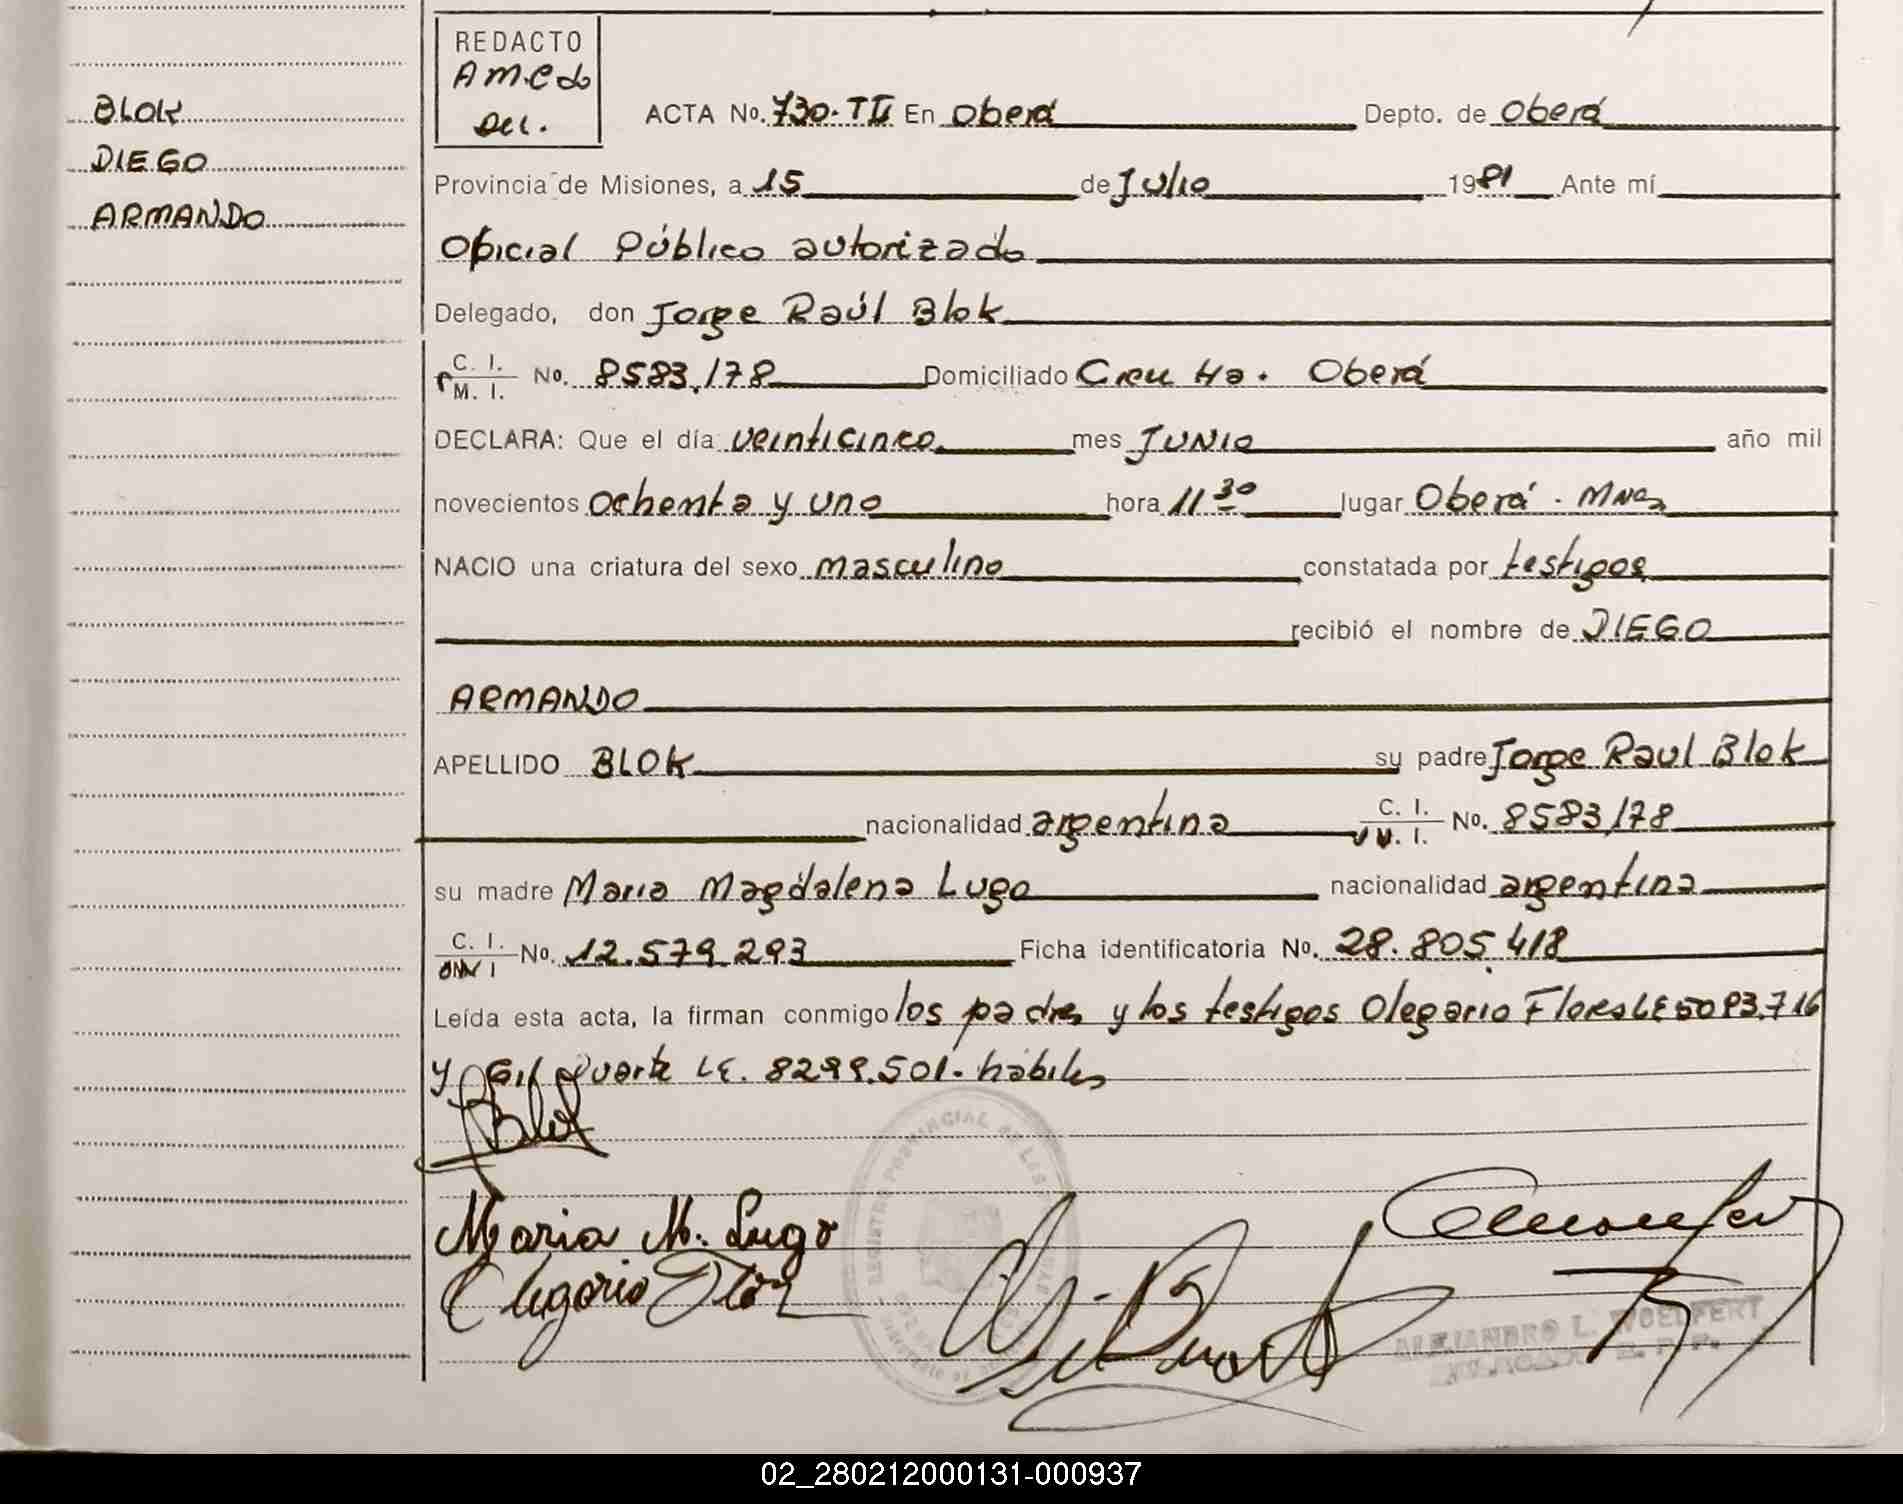 REDACTO
A.M.C de
BLOK
DIEGO
ARMANDO
ACTA No. 730. TII En Oberá Depto. de Oberá
Provincia de Misiones, a 15 de Julio 1981 Ante mí
Oficial Público autorizado
Delegado, don Jorge Raúl Blok
C. I.
M. I. No. 8583.178 Domiciliado Oberá
DECLARA: Que el día veinticinco mes JUNIO año mil
novecientos ochenta y uno hora 11 30 lugar Oberá. Mnes
NACIO una criatura del sexo masculino constatada por testigos
recibió el nombre de DIEGO
ARMANDO
APELLIDO BLOK su padre Jorge Raul Blok
nacionalidad argentina C. I. No. 8583.178
su madre Maria Magdalena Lugo nacionalidad argentina
C. I. No. 12.579.293 Ficha identificatoria No. 28.805.418
Leída esta acta, la firman conmigo los padres y los testigos Olegario Flores LE 5093.716
y Gil Duarte LE. 8299.501. hábiles
Blok
Maria M. Lugo
Olegario Flor
Gil Duarte
REGISTRO PROVINCIAL DE LAS PERSONAS
ALEJANDRO L. WOELFERT
02_280212000131-000937